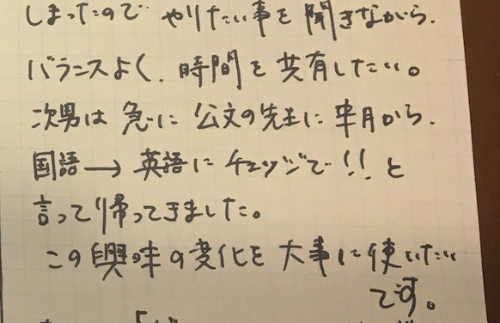 しまったので やりたい事を聞きながら、
バランスよく、時間を共有したい。
次男は 急に 公文の先生に 半月から、
国語→英語に チェンジで!! と
言って帰ってきました。
この興味の変化を 大事に使いたい
です。